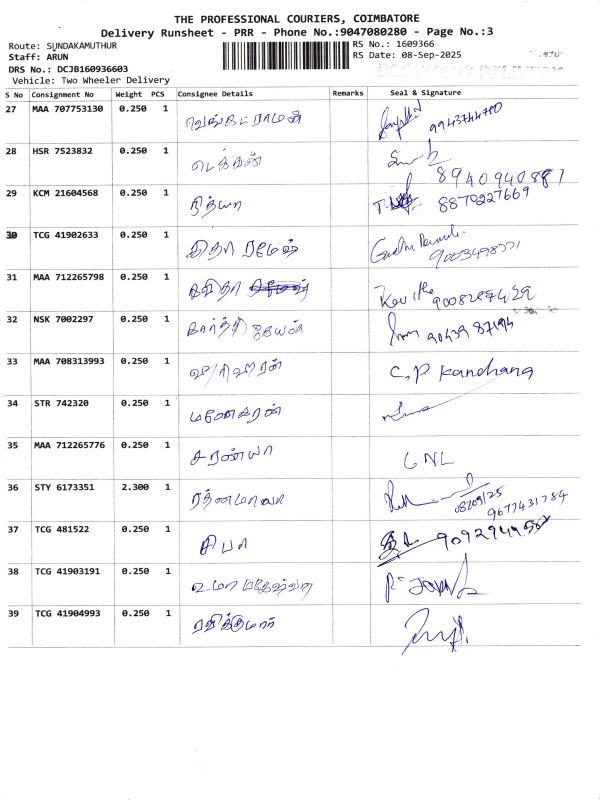 THE PROFESSIONAL COURIERS, COIMBATORE
Delivery Runsheet - PRR - Phone No.:9047080280 - Page No.:3
Route: SUNDAKAMUTHUR RS No.: 1609366
Staff: ARUN RS Date: 08-Sep-2025
DRS No.: DCJB160936603
Vehicle: Two Wheeler Delivery
S No Consignment No Weight PCS Consignee Details Remarks Seal & Signature
27 MAA 707753130 0.250 1 வெங்கட்ராமன் 9943744780
28 HSR 7523832 0.250 1 டெக்கன் 8940940887
29 KCM 21604568 0.250 1 நித்யா 8870227669
30 TCG 41902633 0.250 1 ரமேஷ்
31 MAA 712265798 0.250 1 கவிதா Kavitha
32 NSK 7002297 0.250 1 கார்த்திகேயன்
33 MAA 708313993 0.250 1 ஹரிஹரன் C.P Kandhana
34 STR 742320 0.250 1 மனோகரன்
35 MAA 712265776 0.250 1 சரண்யா GNL
36 STY 6173351 2.300 1 ரத்னமாலா 08/09/25 9677431784
37 TCG 481522 0.250 1 சிபா
38 TCG 41903191 0.250 1 உமா மகேஷ்வரி
39 TCG 41904993 0.250 1 ரவிக்குமார்